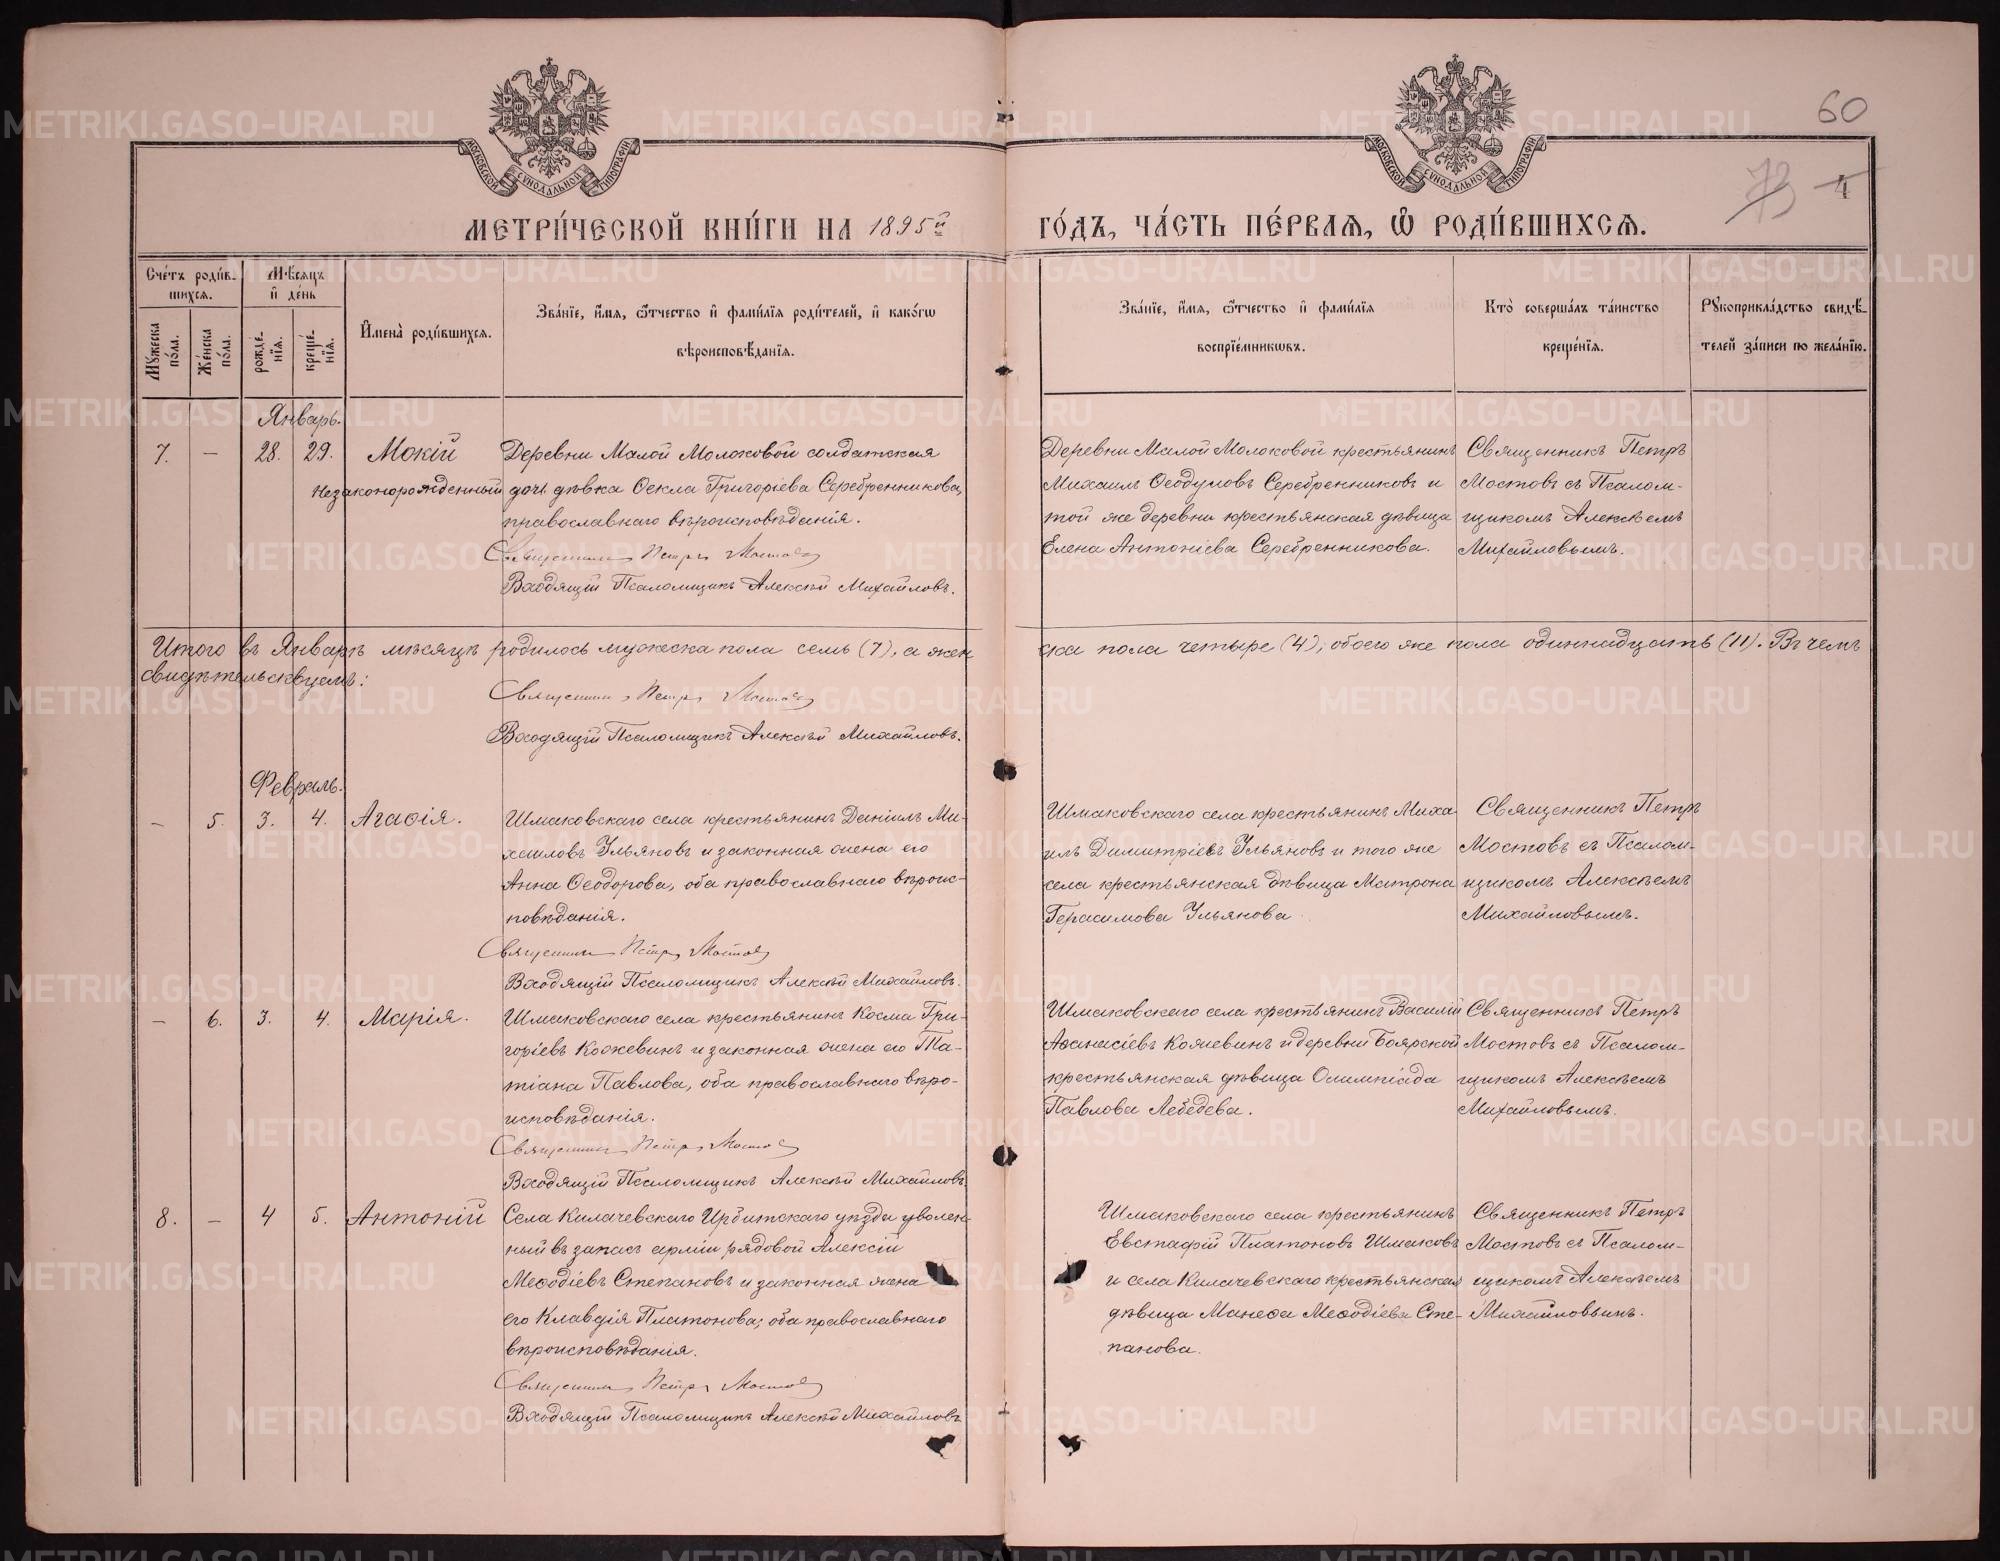 60
73 4
МОСКОВСКОЙ СѴНОДАЛЬНОЙ ТИПОГРАФІИ
МОСКОВСКОЙ СѴНОДАЛЬНОЙ ТИПОГРАФІИ
МЕТРИ́ЧЕСКОЙ КНИ́ГИ НА 1895й ГО́ДЪ, ЧА́СТЬ ПЕ́РВАѦ, Ѡ҆ РОДИ́ВШИХСѦ.
Сче́тъ роди́в-
шихсѧ.
Мѣ́сѧцъ
и҆ де́нь
Мꙋ́жеска по́ла.
Же́нска по́ла.
рожде́-нїѧ.
креще́-нїѧ.
И҆мена̀ роди́вшихсѧ.
Зва́нїе, и҆́мѧ, ѻ҆́тчество и҆ фами́лїѧ роди́телей, и҆ како́гѡ
вѣроисповѣ́данїѧ.
Зва́нїе, и҆́мѧ, ѻ҆́тчество и҆ фами́лїѧ
воспрїе́мникѡвъ.
Кто̀ соверша́лъ та́инство
креще́нїѧ.
Рꙋкоприкла́дство свидѣ́-
телей за́писи по жела́нїю.
Январь.
7. — 28. 29. Мокій
незаконорожденный
Деревни Малой Молоковой солдатская
дочь дѣвка Ѳекла Григоріева Серебренникова,
православнаго вѣроисповѣданія.
Священникъ Петръ Мостовъ
Входящій Псаломщикъ Алексѣй Михайловъ.
Деревни Малой Молоковой крестьянинъ
Михаилъ Ѳеодуловъ Серебренниковъ и
той же деревни крестьянская дѣвица
Елена Антоніева Серебренникова.
Священникъ Петръ
Мостовъ съ Псалом-
щикомъ Алексѣемъ
Михайловымъ.
Итого въ Январѣ мѣсяцѣ родилось мужеска пола семь (7), а жен
ска пола четыре (4), обоего же пола одиннадцать (11). Въ чемъ
свидѣтельствуемъ:
Священникъ Петръ Мостовъ
Входящій Псаломщикъ Алексѣй Михайловъ.
Февраль.
— 5. 3. 4. Агаѳія.
Шмаковскаго села крестьянинъ Даніилъ Ми-
хаиловъ Ульяновъ и законная жена его
Анна Ѳеодорова, оба православнаго вѣроис-
повѣданія.
Священникъ Петръ Мостовъ
Входящій Псаломщикъ Алексѣй Михайловъ.
Шмаковскаго села крестьянинъ Миха
илъ Димитріевъ Ульяновъ и того же
села крестьянская дѣвица Матрона
Герасимова Ульянова
Священникъ Петръ
Мостовъ съ Псалом-
щикомъ Алексѣемъ
Михайловымъ.
— 6. 3. 4. Марія.
Шмаковскаго села крестьянинъ Косма Гри-
горіевъ Кожевинъ и законная жена его Та-
тіана Павлова, оба православнаго вѣро-
исповѣданія.
Священникъ Петръ Мостовъ
Входящій Псаломщикъ Алексѣй Михайловъ.
Шмаковскаго села крестьянинъ Василій
Аѳанасіевъ Кожевинъ и деревни Боярской
крестьянская дѣвица Олимпіада
Павлова Лебедева.
Священникъ Петръ
Мостовъ съ Псалом-
щикомъ Алексѣемъ
Михайловымъ.
8. — 4 5. Антоній
Села Килачевскаго Ирбитскаго уѣзда уволен-
ный въ запасъ арміи рядовой Алексій
Меѳодіевъ Степановъ и законная жена
его Клавдія Платонова; оба православнаго
вѣроисповѣданія.
Священникъ Петръ Мостовъ
Входящій Псаломщикъ Алексѣй Михайловъ
Шмаковскаго села крестьянинъ
Евстафій Платоновъ Шмаковъ
и села Килачевскаго крестьянская
дѣвица Манеѳа Меѳодіева Сте-
панова.
Священникъ Петръ
Мостовъ съ Псалом-
щикомъ Алексѣемъ
Михайловымъ.
METRIKI.GASO-URAL.RU